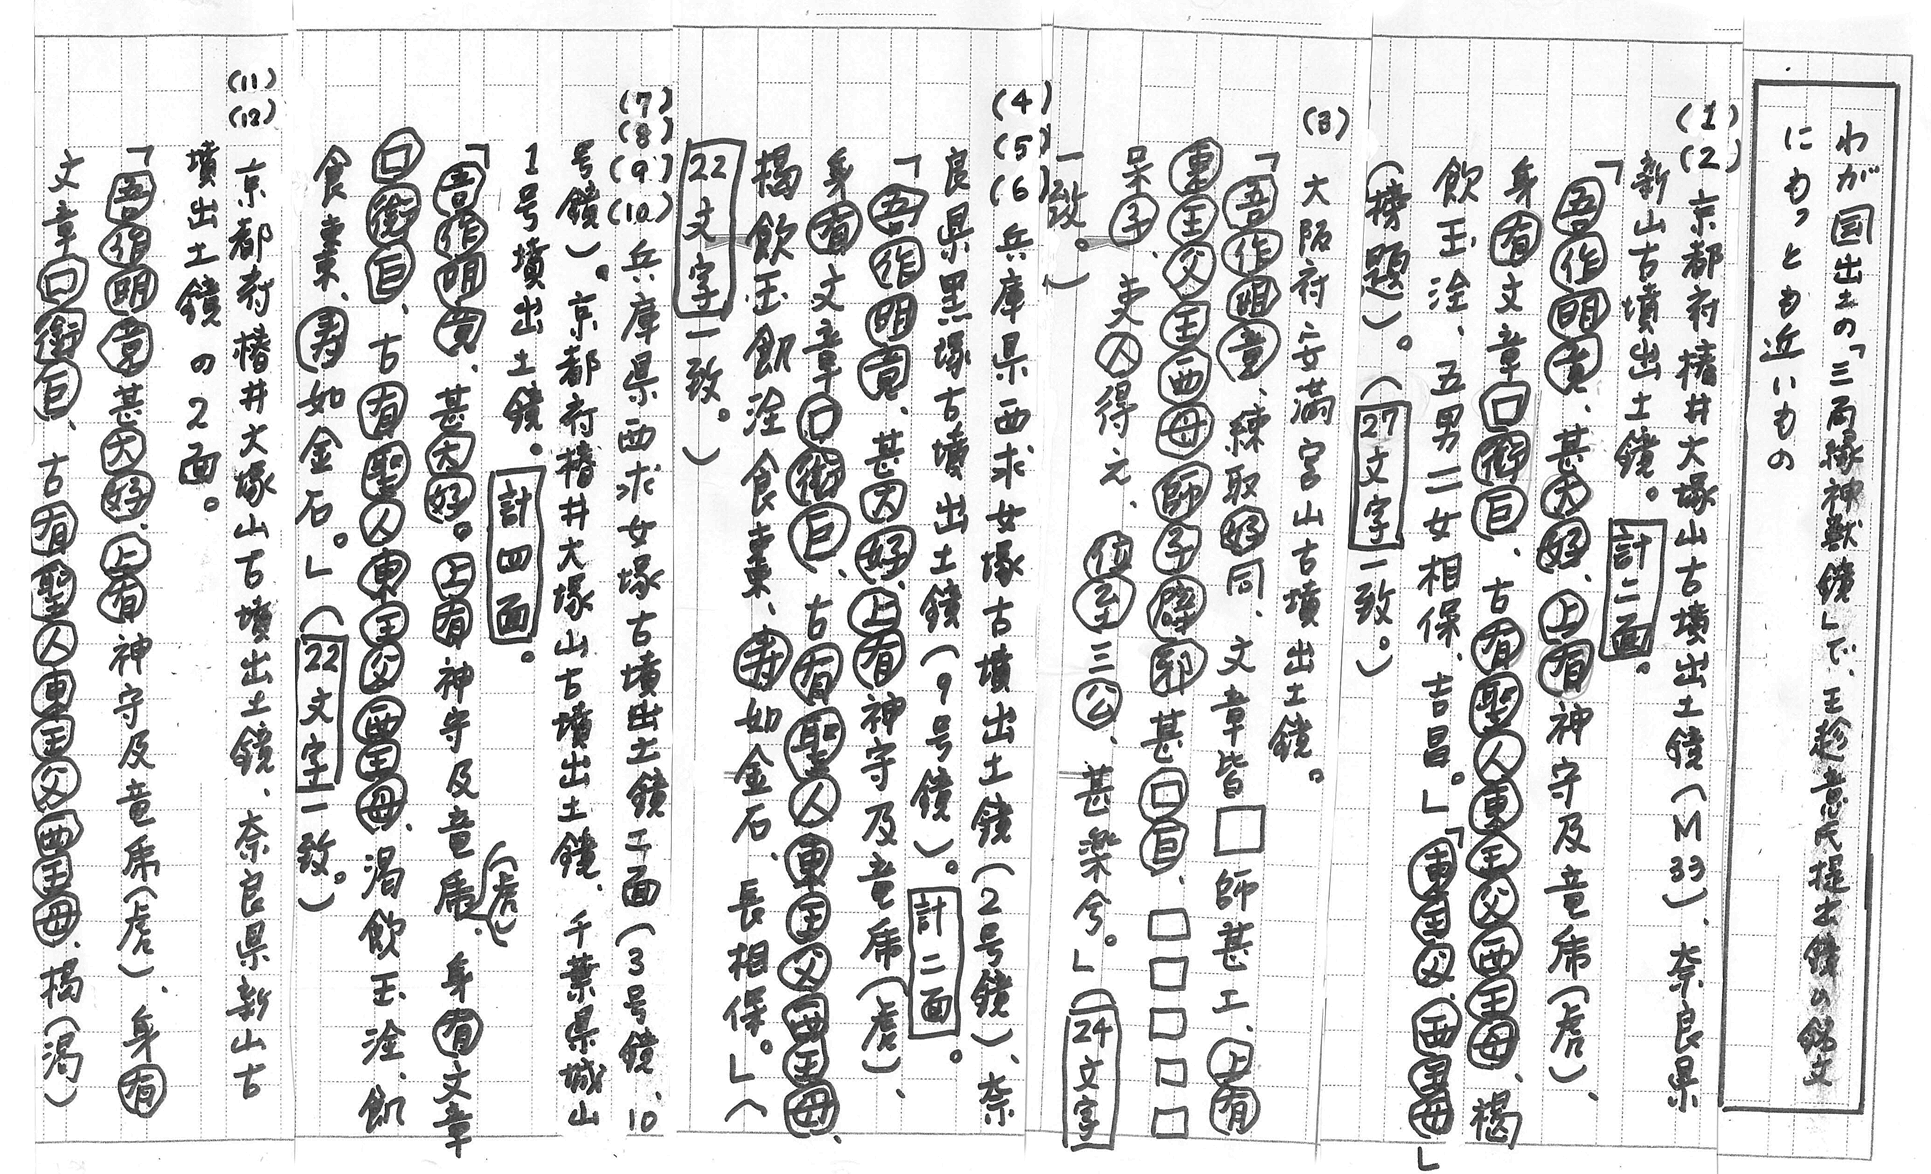 わが国出土の「三角縁神獣鏡」で、王趁意氏提出鏡の銘文
にもっとも近いもの
(1)(2) 京都府椿井大塚山古墳出土鏡(M33)、奈良県
新山古墳出土鏡。計二面。
「吾作明竟、甚大好、上有神守及竜虎(虎)、
身有文章口銜巨、古有聖人東王父西王母、楬
飲玉洤、五男二女相保、吉昌。」「東王父、西王母」
(榜題)。(27文字一致。)
(3) 大阪府安満宮山古墳出土鏡。
「吾作明竟、練取好同、文章皆□師甚工、上有
東王父王西母師子辟邪甚口巨、□□□□□
呆子、吏人得之、位至三公、甚楽兮。」(24文字
一致。)
(4)(5)(6) 兵庫県西求女塚古墳出土鏡(2号鏡)、奈
良県黒塚古墳出土鏡(9号鏡)。計二面。
「吾作明竟、甚大好、上有神守及竜虎(虎)、
身有文章口銜巨、古有聖人東王父西王母、
楬飲玉飢洤食棗、寿如金石、長相保。」(
22文字一致。)
(7)(8)(9)(10) 兵庫県西求女塚古墳出土鏡二面(3号鏡、10
号鏡)。京都府椿井大塚山古墳出土鏡、千葉県城山
1号墳出土鏡。計四面。
「吾作明竟、甚大好。上有神守及竜虎(虎)、身有文章
口銜巨、古有聖人東王父西王母、渇飲玉洤、飢
食棗、寿如金石。」(22文字一致。)
(11)(12) 京都府椿井大塚山古墳出土鏡、奈良県新山古
墳出土鏡の2面。
「吾作明竟甚大好、上有神守及竜虎(虎)、身有
文章口銜巨、古有聖人東王父西王母、楬(渇)